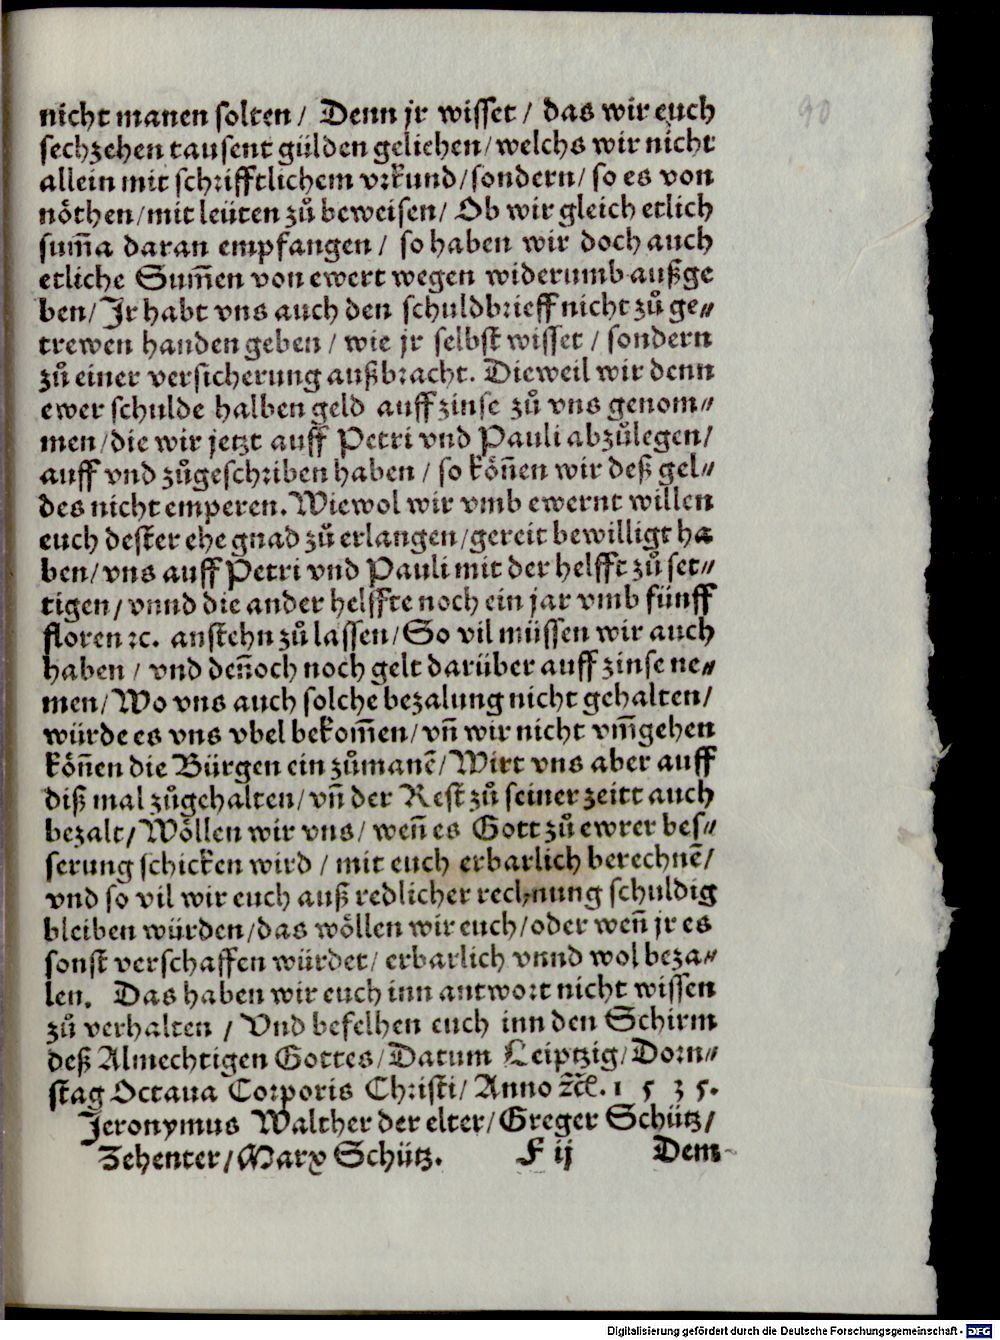 90
nicht manen solten/ Denn jr wisset/ das wir euch
sechzehen tausent gülden geliehen/welchs wir nicht
allein mit schrifftlichem vrkund/sondern/ so es von
nöthen/mit leüten zů beweisen/ Ob wir gleich etlich
sum̃a daran empfangen/ so haben wir doch auch
etliche Sum̃en von ewert wegen widerumb außge
ben/Jr habt vns auch den schuldbrieff nicht zů ge⸗
trewen handen geben/ wie jr selbst wisset/ sondern
zů einer versicherung außbracht. Dieweil wir denn
ewer schulde halben geld auff zinse zů vns genom⸗
men/die wir jetzt auff Petri vnd Pauli abzůlegen/
auff vnd zůgeschriben haben/ so köñen wir deß gel⸗
des nicht emperen. Wiewol wir vmb ewernt willen
euch dester ehe gnad zů erlangen/gereit bewilligt ha
ben/vns auff Petri vnd Pauli mit der helfft zů set⸗
tigen/vnnd die ander helffte noch ein jar vmb fünff
floren ꝛc. anstehn zů lassen/So vil müssen wir auch
haben/ vnd deñoch noch gelt darüber auff zinse ne⸗
men/Wo vns auch solche bezalung nicht gehalten/
würde es vns vbel bekom̃en/vñ wir nicht vm̃gehen
köñen die Bürgen ein zůmanẽ/Wirt vns aber auff
diß mal zůgehalten/vñ der Rest zů seiner zeitt auch
bezalt/Wöllen wir vns/ weñ es Gott zů ewrer bes⸗
serung schicken wird/ mit euch erbarlich berechnẽ/
vnd so vil wir euch auß redlicher rechnung schuldig
bleiben würden/das wöllen wir euch/oder weñ jr es
sonst verschaffen würdet/ erbarlich vnnd wol beza⸗
len. Das haben wir euch inn antwort nicht wissen
zů verhalten/ Vnd befelhen euch inn den Schirm
deß Almechtigen Gottes/Datum Leiptzig/Dorn⸗
stag Octaua Corporis Christi/ Anno ꝛc. 1535.
Jeronymus Walther der elter/Greger Schütz/
Zehenter/Marx Schütz. F ij Dem
Digitalisierung gefördert durch die Deutsche Forschungsgemeinschaft - DFG